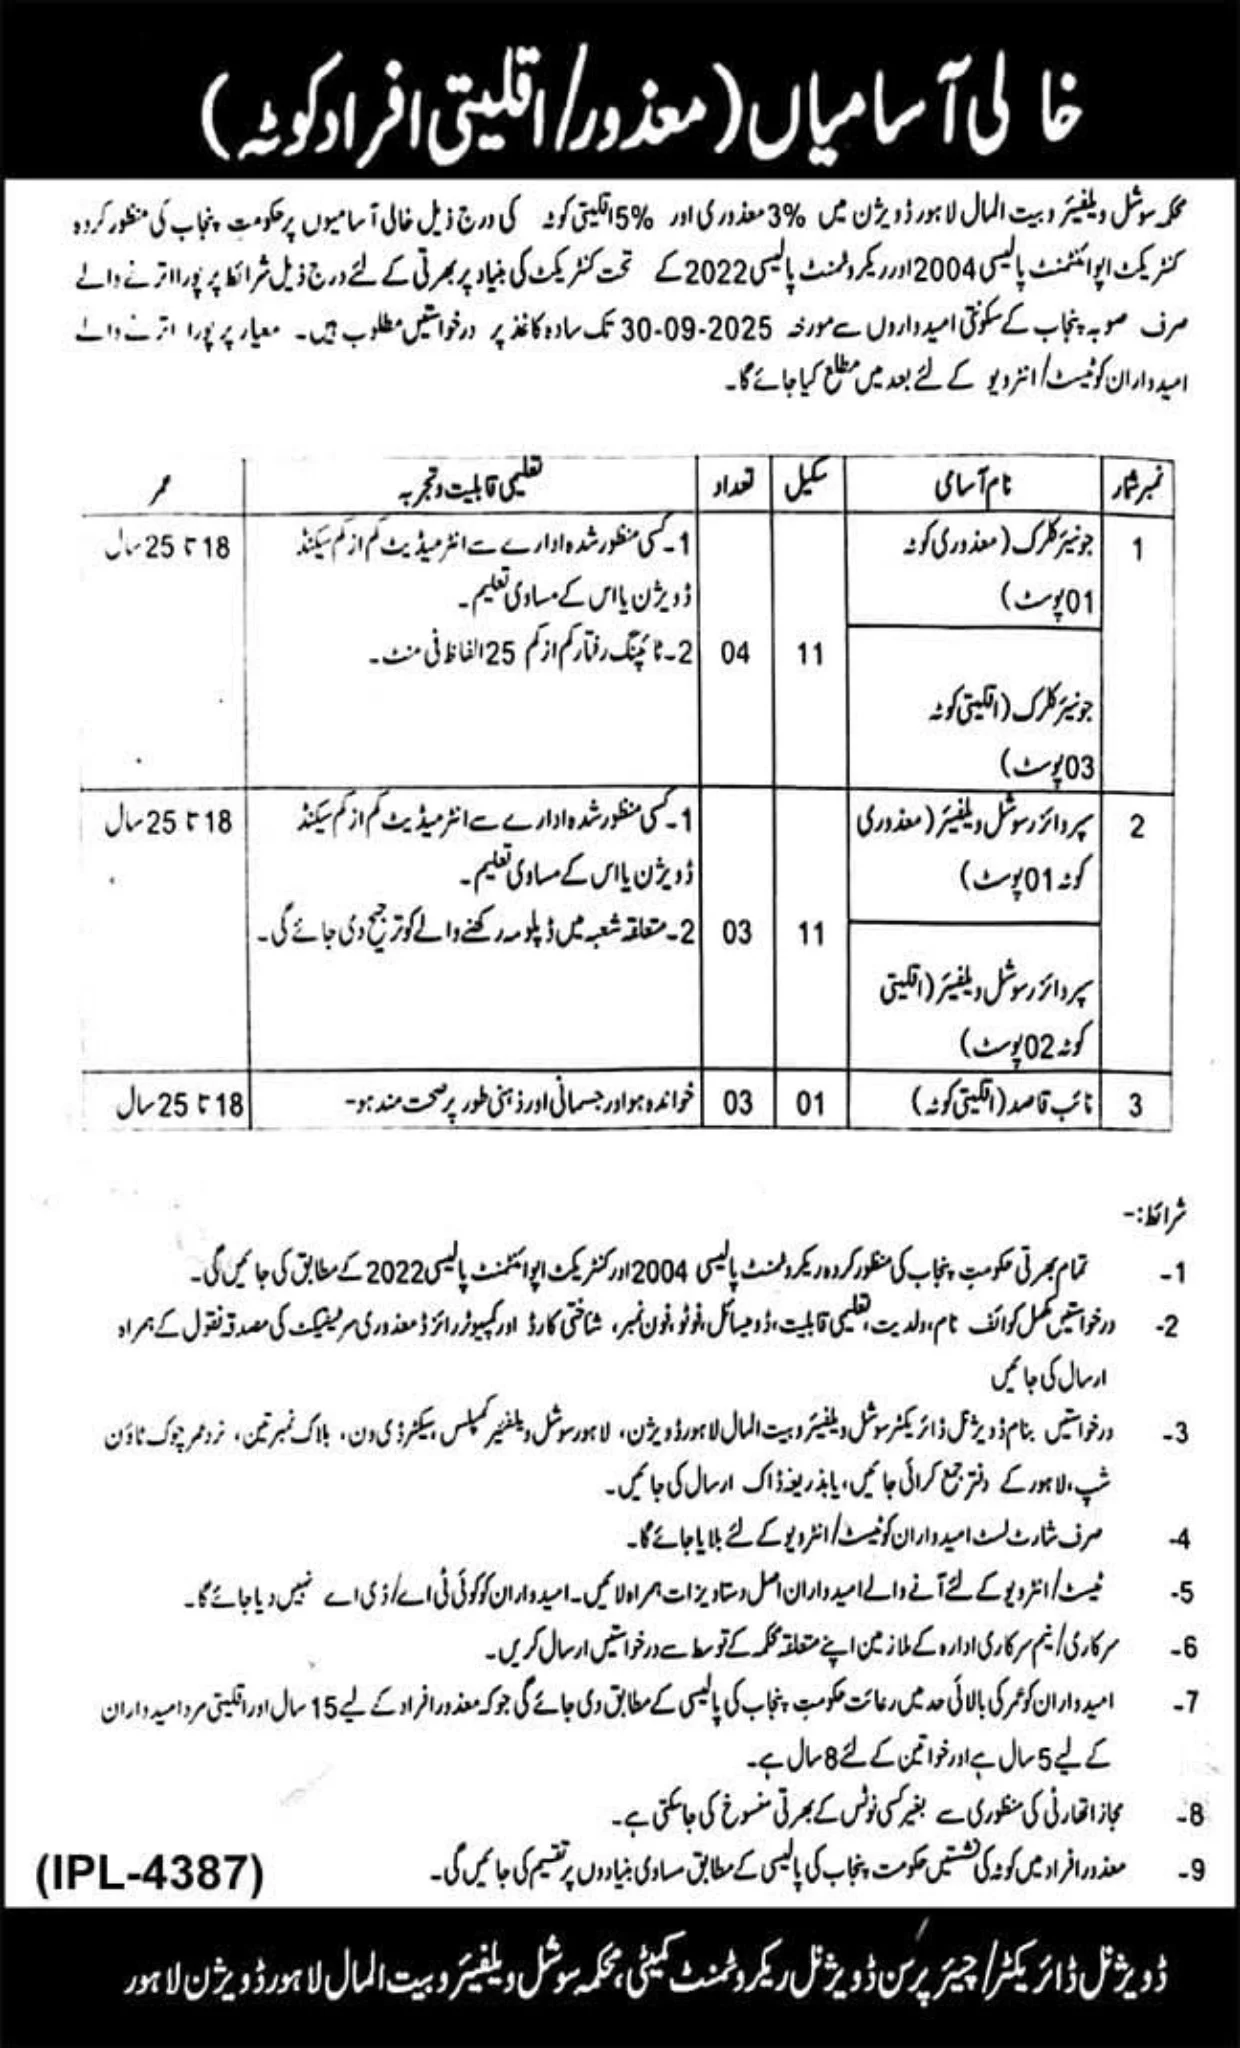 خالی آسامیاں (معذور/اقلیتی افراد کوٹہ)
محکمہ سوشل ویلفیئر و بیت المال لاہور ڈویژن میں 3% معذوری اور 5% اقلیتی کوٹہ کی درج ذیل خالی آسامیوں پر حکومت پنجاب کی منظور کردہ
کنٹریکٹ اپوائنٹمنٹ پالیسی 2004 اور ریکروٹمنٹ پالیسی 2022 کے تحت کنٹریکٹ کی بنیاد پر بھرتی کے لئے درج ذیل شرائط پر پورا اترنے والے
صرف صوبہ پنجاب کے سکونتی امیدواروں سے مورخہ 30-09-2025 تک سادہ کاغذ پر درخواستیں مطلوب ہیں۔ معیار پر پورا اترنے والے
امیدواران کو ٹیسٹ/انٹرویو کے لئے بعد میں مطلع کیا جائے گا۔
نمبر شمار نام آسامی سکیل تعداد تعلیمی قابلیت و تجربہ عمر
1 جونیئر کلرک (معذوری کوٹہ
01 پوسٹ)
جونیئر کلرک (اقلیتی کوٹہ
03 پوسٹ)
11 04
1۔ کسی منظور شدہ ادارے سے انٹرمیڈیٹ کم از کم سیکنڈ
ڈویژن یا اس کے مساوی تعلیم۔
2۔ ٹائپنگ رفتار کم از کم 25 الفاظ فی منٹ۔
18 تا 25 سال
2 سپروائزر سوشل ویلفیئر (معذوری
کوٹہ 01 پوسٹ)
سپروائزر سوشل ویلفیئر (اقلیتی
کوٹہ 02 پوسٹ)
11 03
1۔ کسی منظور شدہ ادارے سے انٹرمیڈیٹ کم از کم سیکنڈ
ڈویژن یا اس کے مساوی تعلیم۔
2۔ متعلقہ شعبہ میں ڈپلومہ رکھنے والے کو ترجیح دی جائے گی۔
18 تا 25 سال
3 نائب قاصد (اقلیتی کوٹہ) 01 03 خواندہ ہو اور جسمانی اور ذہنی طور پر صحت مند ہو- 18 تا 25 سال
شرائط:-
1- تمام بھرتی حکومت پنجاب کی منظور کردہ ریکروٹمنٹ پالیسی 2004 اور کنٹریکٹ اپوائنٹمنٹ پالیسی 2022 کے مطابق کی جائیں گی۔
2- درخواستیں مکمل کوائف نام، ولدیت، تعلیمی قابلیت، ڈومیسائل، فوٹو، فون نمبر، شناختی کارڈ اور کمپیوٹرائزڈ معذوری سرٹیفیکیٹ کی مصدقہ نقول کے ہمراہ
ارسال کی جائیں
3- درخواستیں بنام ڈویژنل ڈائریکٹر سوشل ویلفیئر و بیت المال لاہور ڈویژن، لاہور سوشل ویلفیئر کمپلس، سیکٹر ڈی ون، بلاک نمبر تین، نزد عمر چوک ٹاؤن
شپ، لاہور کے دفتر جمع کرائی جائیں، یا بذریعہ ڈاک ارسال کی جائیں۔
4- صرف شارٹ لسٹ امیدواران کو ٹیسٹ/انٹرویو کے لئے بلایا جائے گا۔
5- ٹیسٹ/انٹرویو کے لئے آنے والے امیدواران اصل دستاویزات ہمراہ لائیں۔ امیدواران کو کوئی ٹی اے/ڈی اے نہیں دیا جائے گا۔
6- سرکاری/نیم سرکاری ادارہ کے ملازمین اپنے متعلقہ محکمہ کے توسط سے درخواستیں ارسال کریں۔
7- امیدواران کو عمر کی بالائی حد میں رعائت حکومت پنجاب کی پالیسی کے مطابق دی جائے گی جو کہ معذور افراد کے لیے 15 سال اور اقلیتی مرد امیدواران
کے لیے 5 سال ہے اور خواتین کے لئے 8 سال ہے۔
8- مجاز اتھارٹی کی منظوری سے بغیر کسی نوٹس کے بھرتی منسوخ کی جا سکتی ہے۔
9- معذور افراد میں کوٹہ کی نشستیں حکومت پنجاب کی پالیسی کے مطابق مساوی بنیادوں پر تقسیم کی جائیں گی۔
(IPL-4387)
ڈویژنل ڈائریکٹر/چیئر پرسن ڈویژنل ریکروٹمنٹ کمیٹی، محکمہ سوشل ویلفیئر و بیت المال لاہور ڈویژن لاہور